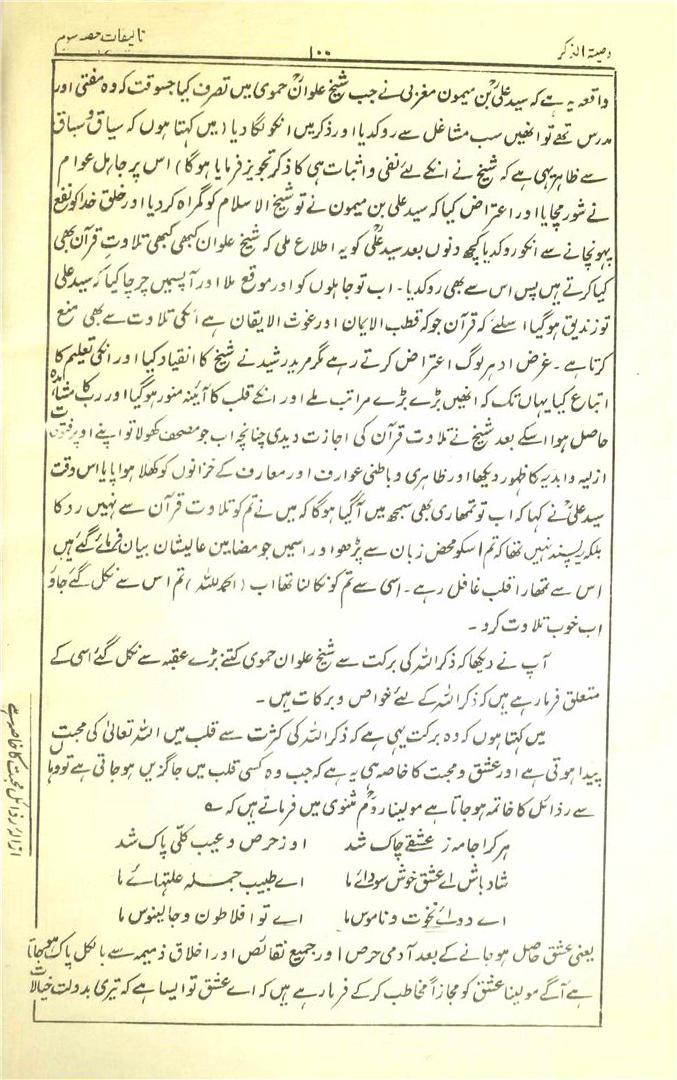 وصیۃ الذکر
۱۰۰
تالیفات حصہ سوم
واقعہ یہ ہے کہ سید علی بن میمون مغربی نے جب شیخ علوان حموی میں تصرف کیا جسوقت کہ وہ مفتی اور
مدرس تھے تو انھیں سب مشاغل سے روکدیا اور ذکر میں انکو لگا دیا (میں کہتا ہوں کہ سیاق و سباق
سے ظاہر یہی ہے کہ شیخ نے انکے لئے نفی و اثبات ہی کا ذکر تجویز فرمایا ہوگا) اس پر جاہل عوام
نے شور مچایا اور اعتراض کیا کہ سید علی بن میمون نے تو شیخ الاسلام کو گمراہ کردیا اور خلق خدا کو نفع
پہونچانے سے انکو روکدیا کچھ دنوں بعد سید علیؒ کو یہ اطلاع ملی کہ شیخ علوان کبھی کبھی تلاوت قرآن بھی
کیا کرتے ہیں پس اس سے بھی روکدیا۔ اب تو جاہلوں کو اور موقع ملا اور آپسمیں چرچا کیا کہ سید علی
تو زندیق ہوگیا اسلئے کہ قرآن جو کہ قطب الایمان اور غوث الایقان ہے انکی تلاوت سے بھی منع
کرتا ہے۔ غرض ادہر لوگ اعتراض کرتے رہے مگر مرید رشید نے شیخ کا انقیاد کیا اور انکی تعلیم کا
اتباع کیا یہاں تک کہ انھیں بڑے بڑے مراتب ملے اور انکے قلب کا آئینہ منور ہوگیا اور رب کا مشاہدہ
حاصل ہوا اسکے بعد شیخ نے تلاوت قرآن کی اجازت دیدی چنانچہ اب جو مصحف کھولا تو اپنے اوپر فتوحات
ازلیہ و ابدیہ کا ظہور دیکھا اور ظاہری و باطنی عوارف اور معارف کے خزانوں کو کھلا ہوا پایا اس وقت
سید علیؒ نے کہا کہ اب تو تمھاری بھی سمجھ میں آگیا ہوگا کہ میں نے تم کو تلاوت قرآن سے نہیں روکا
بلکہ یہ پسند نہیں تھا کہ تم اسکو محض زبان سے پڑھو اور اسمیں جو مضامین عالیشان بیان فرمائے گئے ہیں
اس سے تمھارا قلب غافل رہے۔ اسی سے تم کو نکالنا تھا اب (الحمد للہ) تم اس سے نکل گئے جاؤ
اب خوب تلاوت کرو۔
آپ نے دیکھا کہ ذکر اللہ کی برکت سے شیخ علوان حموی کتنے بڑے عقبہ سے نکل گئے اسی کے
متعلق فرما رہے ہیں کہ ذکر اللہ کے لئے خواص و برکات ہیں۔
میں کہتا ہوں کہ وہ برکت یہی ہے کہ ذکر اللہ کی کثرت سے قلب میں اللہ تعالیٰ کی محبت
پیدا ہوتی ہے اور عشق و محبت کا خاصہ ہی یہ ہے کہ جب وہ کسی قلب میں جاگزیں ہو جاتی ہے تو وہاں
سے رذائل کا خاتمہ ہو جاتا ہے مولینا رومؒ مثنوی میں فرماتے ہیں کہ ؎
ہر کرا جامہ ز عشقے چاک شد     او ز حرص و عیب کلّی پاک شد
شاد باش اے عشق خوش سودائے ما     اے طبیب جملہ علتہائے ما
اے دوائے نخوت و ناموس ما     اے تو افلاطون و جالینوس ما
یعنی عشق حاصل ہو جانے کے بعد آدمی حرص اور جمیع نقائص اور اخلاق ذمیمہ سے بالکل پاک ہو جاتا
ہے آگے مولینا عشق کو مجازاً مخاطب کرکے فرما رہے ہیں کہ اے عشق تو ایسا ہے کہ تیری بدولت خیالات
ازالۂ رذائل محبت کا خاصہ ہے